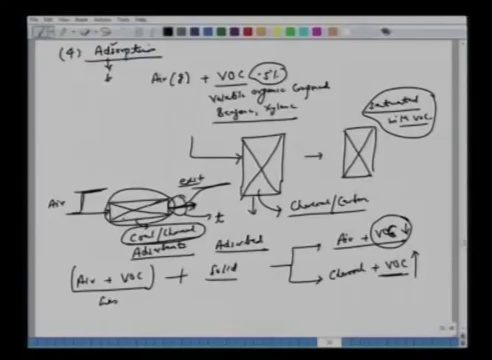 (4) Adsorption
Air (g) + VOC (.5%)
Volatile organic Compound
Benzene, Xylene
Saturated
with VOC.
exit
Air
t
Charcoal/Carbon
Coal/Charcoal
Adsorbents
Adsorbed
(Air + VOC) + Solid
Gas
Air + VOC ↓
Charcoal + VOC ↑